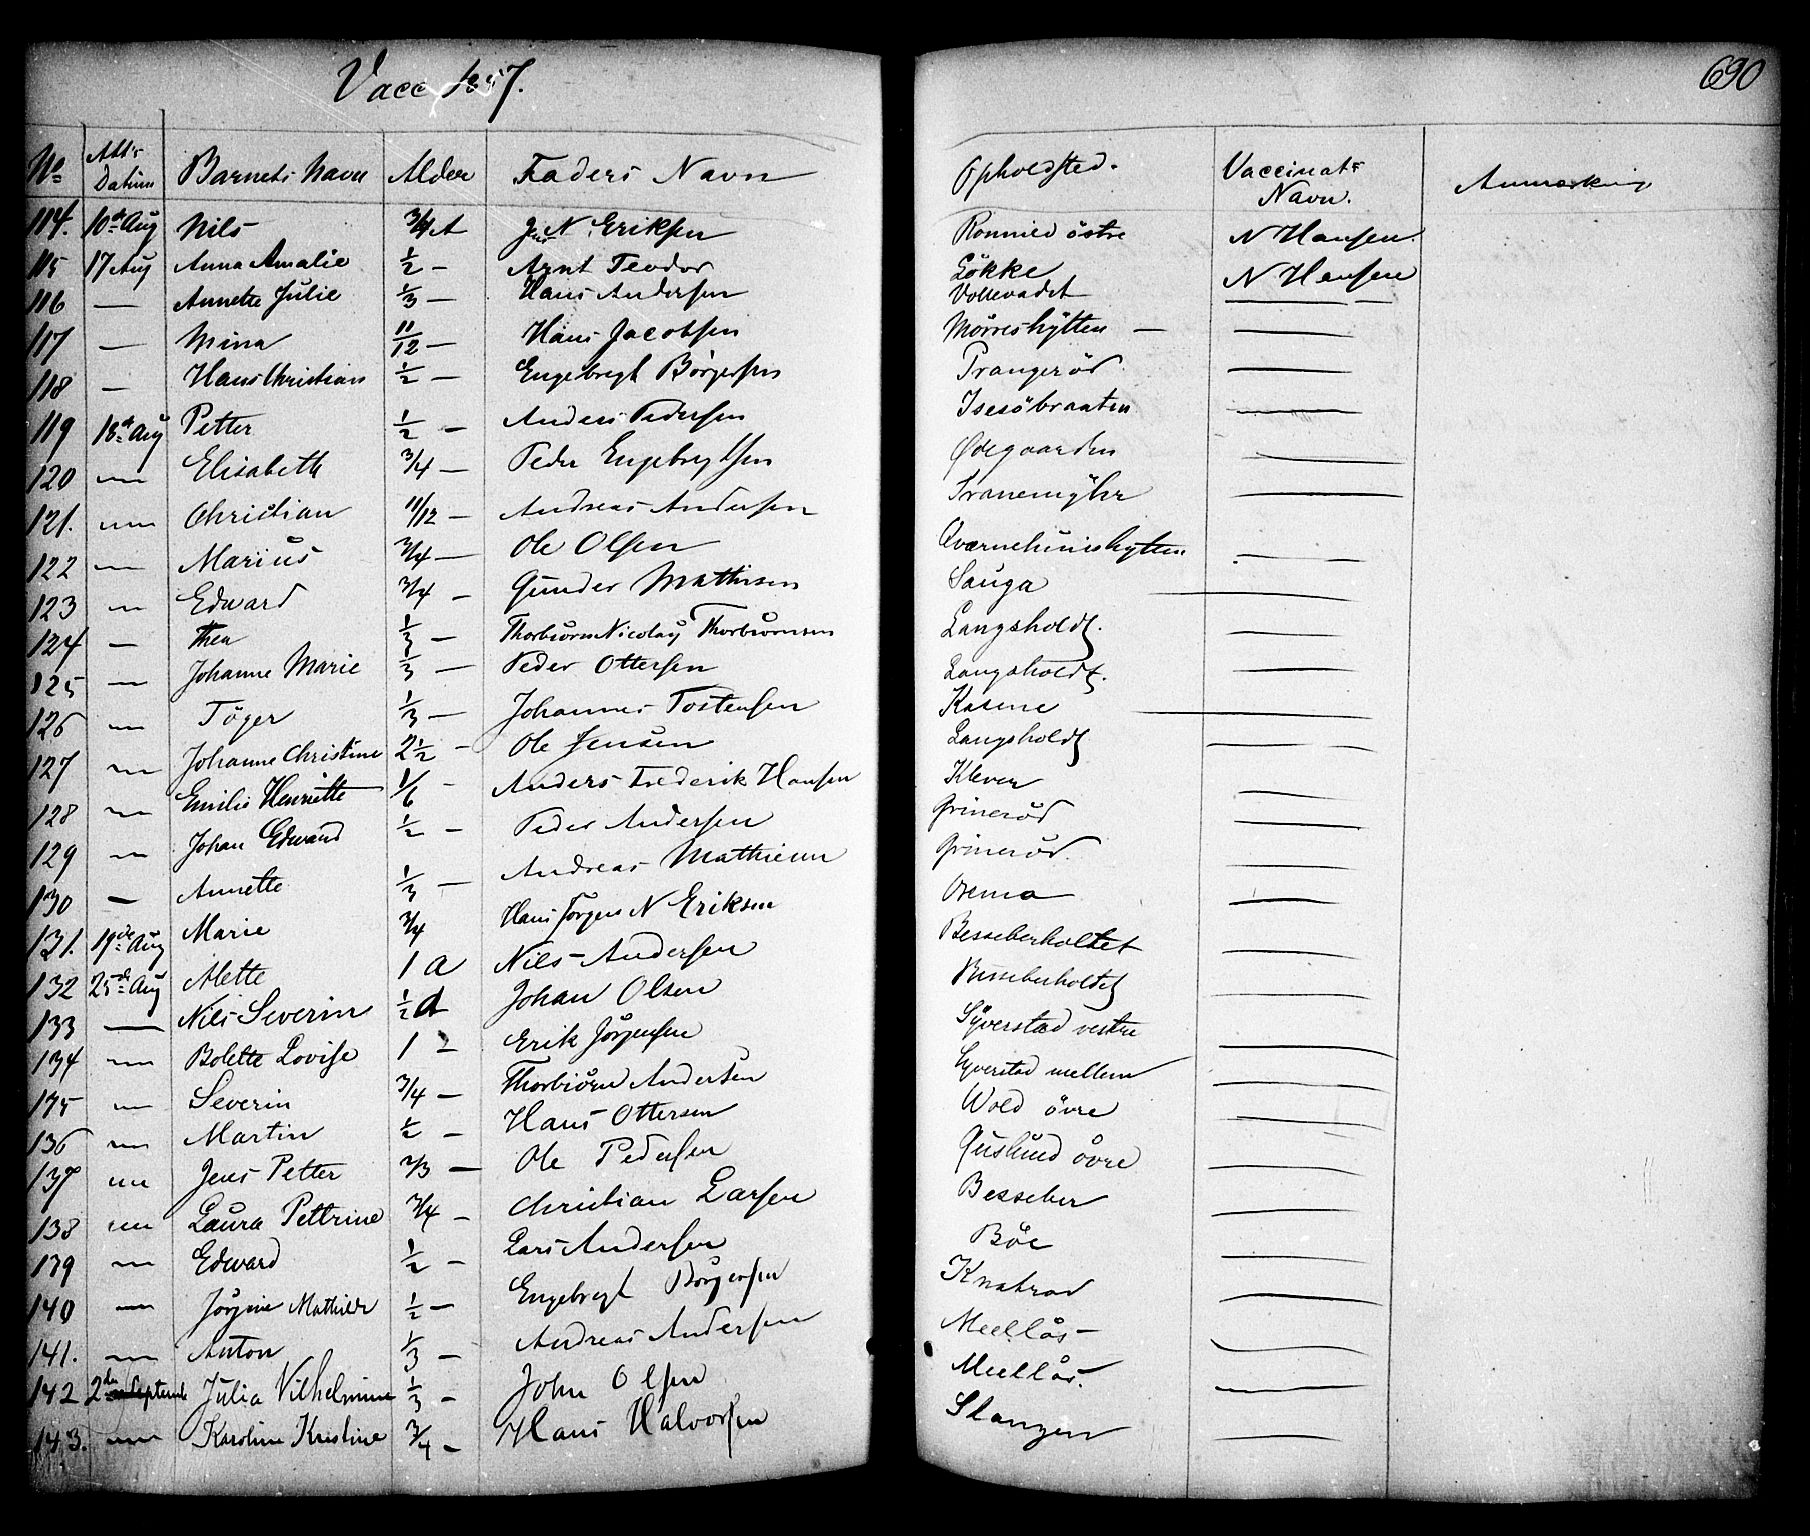 Vacc 1857.
690
No Att's Datum Barnets Navn Alder Faders Navn Opholdsted. Vaccinats Navn. Anmærkning
114. 10de Aug Nils 3/4 A N. Eriksen Romnied östre N Hansen.
115 17 Aug Anna Amalie 1/2 – Arnt Teodor Lökke N Hansen
116 — Annette Julie 1/3 – Hans Andersen Vollevadet —
117 — Mina 11/12 – Hans Jacobsen Mörreshÿtten — —
118 — Hans Christian 1/2 – Engebregt Börgersen Prangeröd —
119 18de Aug Petter 1/2 – Anders Pedersen Isesöbraaten —
120 — Elisabeth 3/4 – Peder Engebregtsen Ödegaarden —
121. — Christian 11/12 – Andreas Andersen Tranemÿhr —
122 — Marius 3/4 – Ole Olsen —
123 — Edward 3/4 – Gunder Mathisen Sauga —
124 — Thea 1/3 – Thorbiörn Nicolaÿ Thorbiörnsen Langsholdt. —
125 — Johanne Marie 1/3 – Peder Ottersen Langsholdt. —
126 — Töger 1/3 – Johannes Tostensen Kasene —
127 — Johanne Christine 2 1/2 – Ole Jensen Langsholdt —
128 — Emilie Henriette 1/6 – Anders Frederik Hansen Klever —
129 — Johan Edward 1/2 – Peder Andersen Grineröd —
130 — Annette 1/3 – Andreas Mathiesen Grineröd. —
131. 19de Aug Marie 3/4 Hans Jörgen N Eriksen —
132 25de Aug Alette 1 a Nils Andersen Besseberholtet —
133 — Nils Severin 1/2 a Johan Olsen Besseberholdet —
134 — Bolette Lovise 1 – Erik Jörgensen Sÿverstad vestre —
135 — Severin 3/4 – Thorbiörn Andersen Syverstad mellem —
136 — Martin 1/2 – Hans Ottersen Wold övre —
137 — Jens Petter 2/3 – Ole Pedersen Guslund övre —
138 — Laura Pettrine 3/4 – Christian Larsen Besseber —
139 — Edward 1/2 – Lars Andersen Böe —
140 — Jörgine Mathilde 1/2 – Engebregt Börgersen Knatrod —
141. — Anton 1/3 – Andreas Andersen Mellös —
142 2den Septemb Julia Vilhelmine 1/3 – John Olsen Mellös. —
143. — Karoline Kristine 3/4 – Hans Halvorsen Slangen —